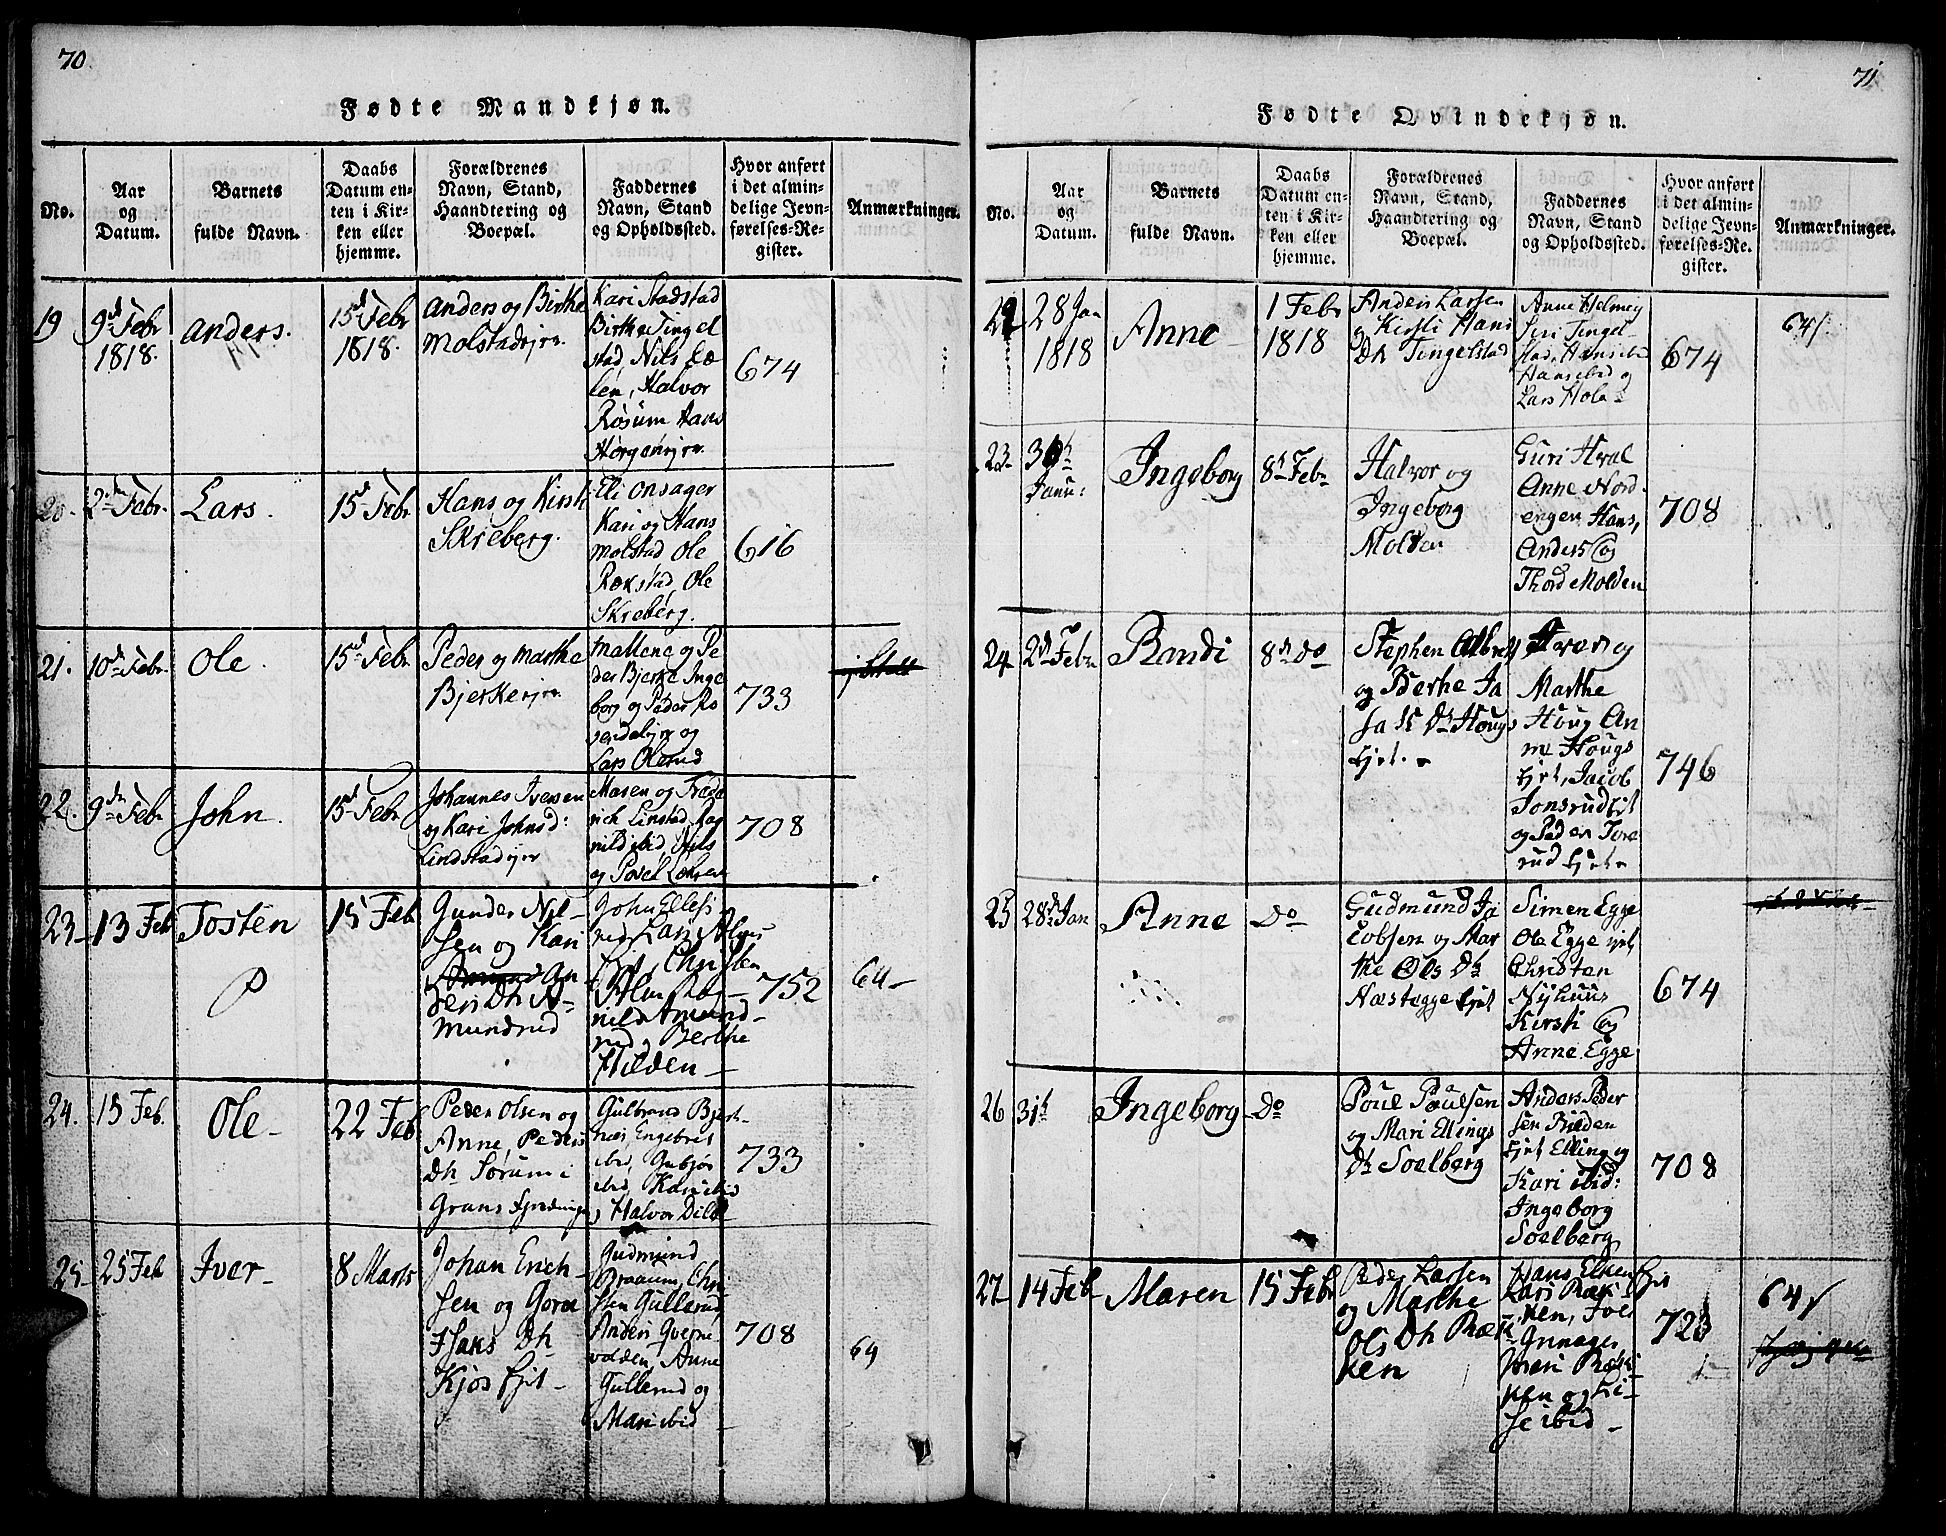 70.
Fødte Mandkjøn.
No.
Aar
og
Datum.
Barnets
fulde Navn.
Daabs
Datum en-
ten i Kir-
ken eller
hjemme.
Forældrenes
Navn, Stand,
Haandtering og
Boepæl.
Faddernes
Navn, Stand
og Opholdssted.
Hvor anført
i det almin-
delige Jevn-
førelses-Re-
gister.
Anmærkninger.
19
9de Febr
1818.
Anders.
15de Febr
1818.
Anders og Birthe
Molstadejre
Kari Stadstad
Birthe Tingel
stad, Nils
Halvor
Røsum Hans
674
20.
2den Febr.
Lars.
15de Febr
Hans og Kirsti
Skrieberg.
Eli Onsager
Kari og Hans
Molstad Ole
Rækstad Ole
Skreberg.
616
21.
10de Febr.
Ole.
15de Febr
Peder og Marthe
Bjerkeejre
Mallene og Pe
der Bjerke Inge
borg og Peder Ro
og
Lars Olerud
733
22.
9de Febr
John.
15de Febr
Johannes Iversen
og Kari Johnsd:
Lindstadejer
Maren og Frede
rich Linstad, Rag
nild ibid, Nils
og Povel
708
23
13 Feb
Tosten
15 Feb
Gunder Niel-
sen og Kari
An
ders Dh A-
mundrud
John
Lars Alm
Christen
Alm Rag-
nild Amund-
rud, Berthe
Hilden
752
64
24.
15 Feb.
Ole
22 Feb
Peder Olsen og
Anne Peders
Dh Sørum i
Grans Fjerdingen
Gulbrand Bjert-
næs, Engebret
ibid, Gubjør
ibid, Kari ibid
Halvor
733
25
25 Feb
Iver
8 Marts
Johan Erich-
sen og Goro
Hans Dh
Kjos Ejet
Gudmund
Braaum, Chri
sten Gullerud
Anders Qverne
volden, Anne
Gullerud og
Mari ibid
708
64
71
Fødte Qvindekjøn.
No.
Aar
og
Datum.
Barnets
fulde Navn.
Daabs
Datum en-
ten i Kir-
ken eller
hjemme.
Forældrenes
Navn, Stand,
Haandtering og
Boepæl.
Faddernes
Navn, Stand
og Opholdssted.
Hvor anført
i det almin-
delige Jevn-
førelses-Re-
gister.
Anmærkninger.
22
28 Jan
1818
Anne
1 Febr
1818
Anders Larsen
og Kirsti Hans
Dh Tingelstad
Anne Helmey
Siri Tingel-
stad,
Hans ibid og
Lars Hole
674
64
23
Janu:
Ingeborg
8de Febr
Halvor og
Ingeborg
Molden
Guri Hval
Anne Nord-
engen Hans,
Anders og
Thord Molden
708
24
2den Febr
Randi
8de Do
Stephen
og Berthe Ja
Dh Hougs
Ejet
Iver og
Marthe
Houg An
ne Hougs
Ejet, Jacob
Jonsrudejet
og Peder Tore
rud Ejet
746
25
28de Jan
Anne
Do
Gudmund Ja
cobsen og Mar
the Ols Dh
Næstegge Ejet
Simen Egge
Ole Egge ejet
Christen
Nyhuus
Kirsti og
Anne Egge
674
26
31te
Ingeborg
Do
Poul Poulsen
og Mari Ellings
Dh Soelberg
Anders Peder
sen Rilden
Ejet Elling og
Kari ibid:
Ingeborg
Soelberg
708
27
14 Feb
Maren
15 Feb
Peder Larsen
og Marthe
Ols Dh Ræk
ken
Hans
Lars Ræk
ken, Iver
Mari Ræk
ken og Li-
se ibid
723
64